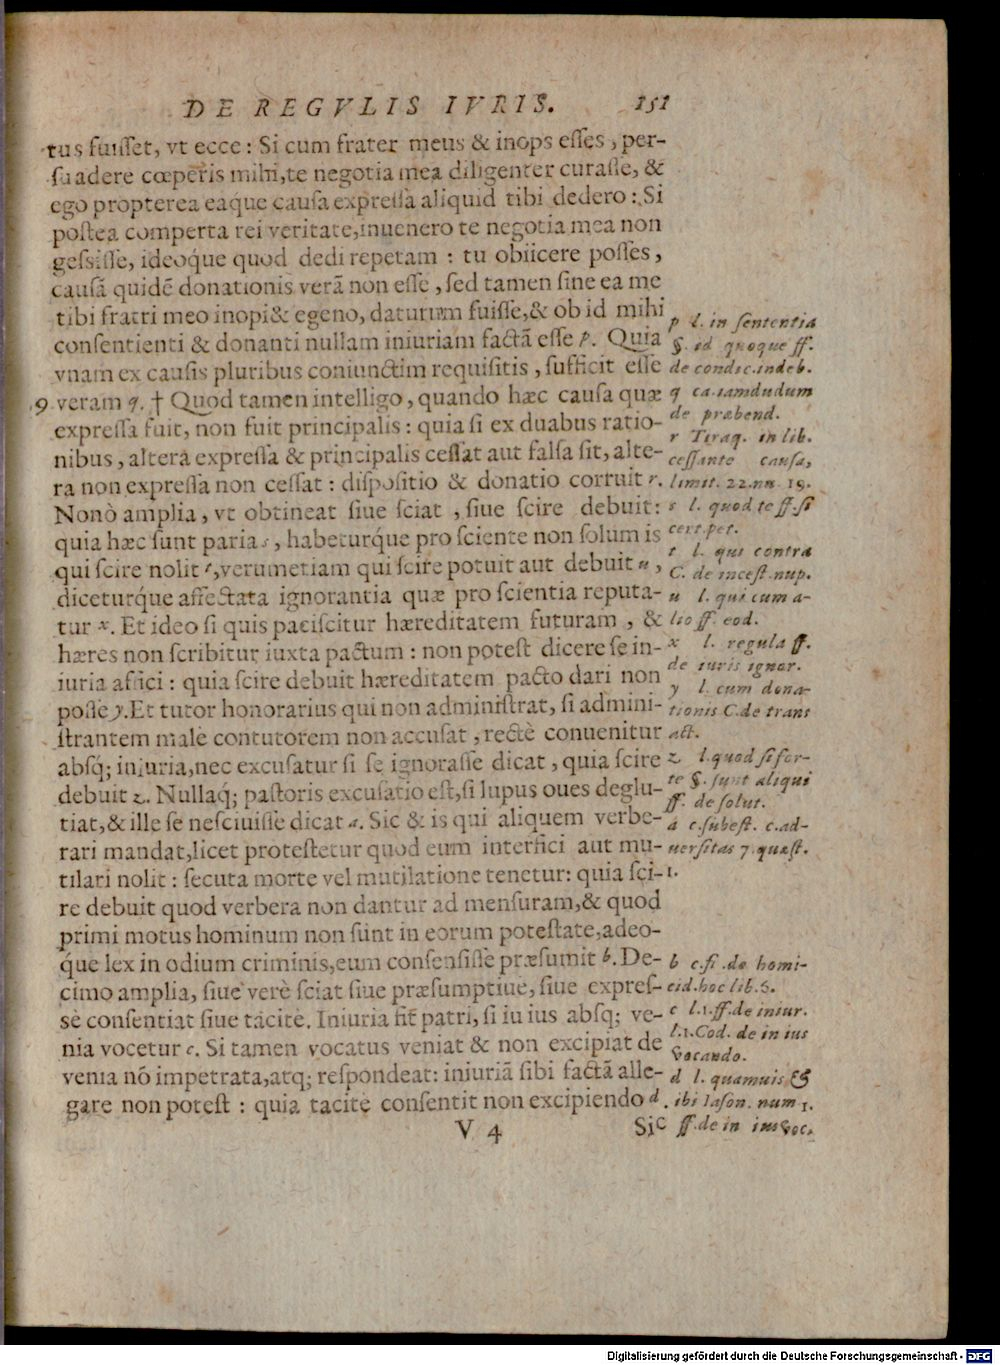 DE REGVLIS IVRIS. 151
tus fuiſſet, vt ecce: Si cum frater meus & inops eſſes, per-
ſuadere cœperis mihi, te negotia mea diligenter curaſſe, &
ego propterea eaque cauſa expreſſa aliquid tibi dedero: Si
poſtea comperta rei veritate, inuenero te negotia mea non
geſsiſſe, ideoq́ue quod dedi repetam: tu obiicere poſſes,
cauſã quidẽ donationis verã non eſſe, ſed tamen ſine ea me
tibi fratri meo inopi & egeno, daturum fuiſſe, & ob id mihi
conſentienti & donanti nullam iniuriam factã eſſe p. Quia
vnam ex cauſis pluribus coniunctim requiſitis, ſufficit eſſe
19 veram q. † Quod tamen intelligo, quando hæc cauſa quæ
expreſſa fuit, non fuit principalis: quia ſi ex duabus ratio-
nibus, altera expreſſa & principalis ceſſat aut falſa ſit, alte-
ra non expreſſa non ceſſat: diſpoſitio & donatio corruit r.
Nonò amplia, vt obtineat ſiue ſciat, ſiue ſcire debuit:
quia hæc ſunt paria s, habeturq́ue pro ſciente non ſolum is
qui ſcire nolit t, verumetiam qui ſcire potuit aut debuit u,
diceturq́ue affectata ignorantia quæ pro ſcientia reputa-
tur x. Et ideo ſi quis paciſcitur hæreditatem futuram, &
hæres non ſcribitur iuxta pactum: non poteſt dicere ſe in-
iuria affici: quia ſcire debuit hæreditatem pacto dari non
poſſe y. Et tutor honorarius qui non adminiſtrat, ſi admini-
ſtrantem male contutorem non accuſat, rectè conuenitur
abſq; iniuria, nec excuſatur ſi ſe ignoraſſe dicat, quia ſcire
debuit z. Nullaq́; paſtoris excuſatio eſt, ſi lupus oues deglu-
tiat, & ille ſe neſciuiſſe dicat a. Sic & is qui aliquem verbe-
rari mandat, licet proteſtetur quod eum interfici aut mu-
tilari nolit: ſecuta morte vel mutilatione tenetur: quia ſci-
re debuit quod verbera non dantur ad menſuram, & quod
primi motus hominum non ſunt in eorum poteſtate, adeo-
q́ue lex in odium criminis, eum conſenſiſſe præſumit b. De-
cimo amplia, ſiue verè ſciat ſiue præſumptiuè, ſiue expreſ-
sè conſentiat ſiue tacitè. Iniuria fit patri, ſi iu ius abſq; ve-
nia vocetur c. Si tamen vocatus veniat & non excipiat de
venia nõ impetrata, atq; reſpondeat: iniuriã ſibi factã alle-
gare non poteſt: quia tacitè conſentit non excipiendo d.
V 4 Sic
p l. in ſententia
§. id quoque ff.
de condic. indeb.
q ca. iamdudum
de præbend.
r Tiraq. in lib.
ceſſante cauſa,
limit. 22. nu. 19.
s l. quod te ff. ſi
cert. pet.
t l. qui contra
C. de inceſt. nup.
u l. qui cum a-
lio ff. eod.
x l. regula ff.
de iuris ignor.
y l. cum dona-
tionis C. de trans
act.
z l. quod ſi for-
te §. ſunt aliqui
ff. de ſolut.
a c. ſubeſt. c. ad-
uerſitas 7. quæſt.
1.
b c. fi. de homi-
cid. hoc lib. 6.
c l. 1. ff. de iniur.
l. 1. Cod. de in ius
vocando.
d l. quamuis &
ibi Iaſon. num 1.
ff. de in ius voc.
Digitalisierung gefördert durch die Deutsche Forschungsgemeinschaft - DFG